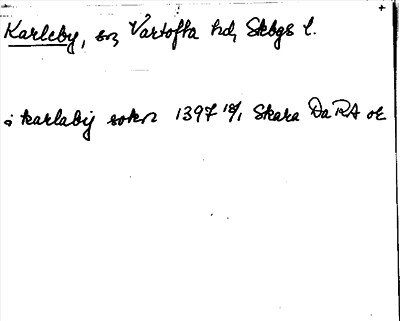 Karleby, sn, Vartofta hd, Skbgs l.
i karlabij sokn 1397 18/1 Skara Da RA or